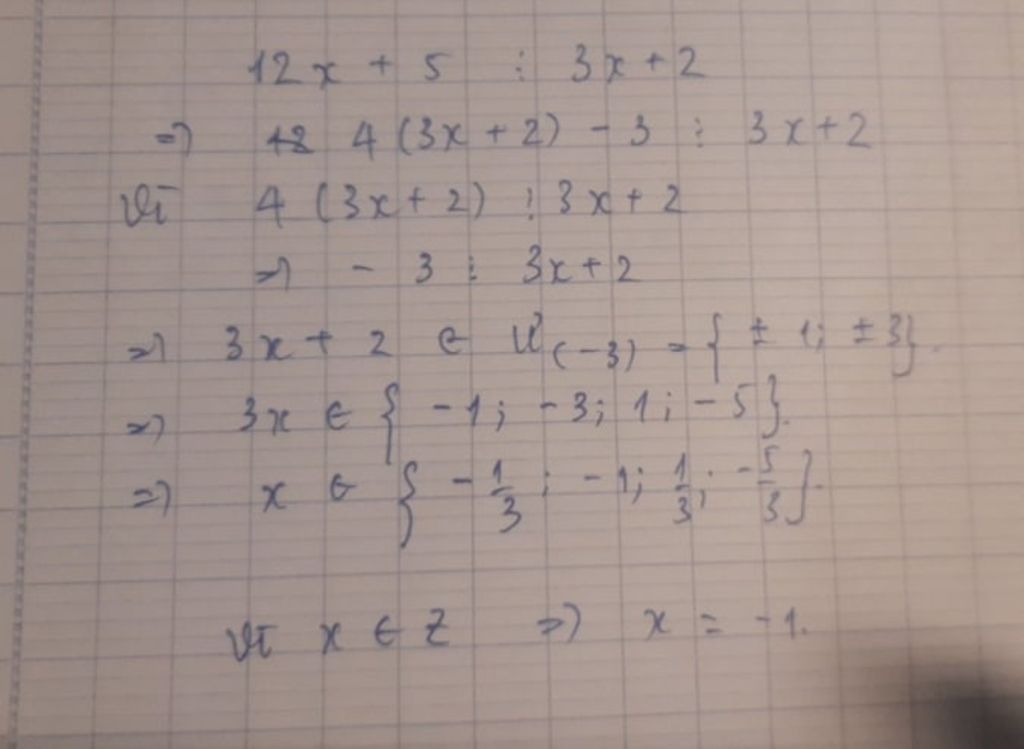 12x + 5 ⋮ 3x + 2
=> 4 (3x + 2) - 3 ⋮ 3x + 2
Vì 4 (3x + 2) ⋮ 3x + 2
=> - 3 ⋮ 3x + 2
=> 3x + 2 ∈ Ư(-3) = { ± 1; ± 3}.
=> 3x ∈ { -1; -3; 1; -5}.
=> x ∈ { -1/3; -1; 1/3; -5/3}.
Vì x ∈ Z => x = -1.